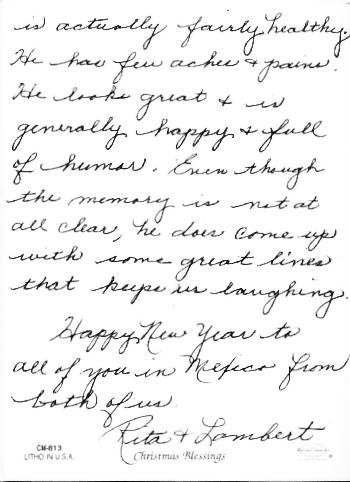 is actually fairly healthy.
He has few aches & pains.
He looks great & is
generally happy & full
of humor. Even though
the memory is not at
all clear, he does come up
with some great lines
that keeps us laughing.
Happy New Year to
all of you in Mexico from
both of us.
Rita & Lambert
CM-613
LITHO IN U.S.A.
Christmas Blessings